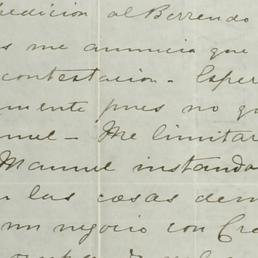 pedicion al Berrendo
s me anuncia que
contestacion. Esper
mente pues no qu
nuel — Me limitar
Manuel instando
las cosas dem
un negocio con Cre